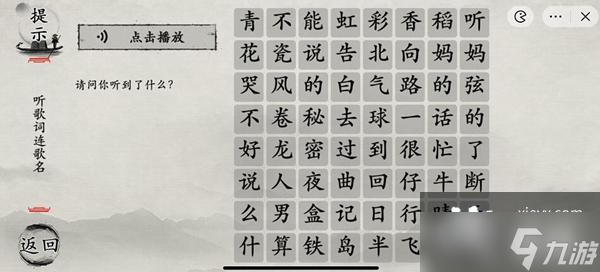 提示
点击播放
请问你听到了什么?
听歌词连歌名
返回
青不能虹彩香稻听
花瓷说告北向妈妈
哭风的白气路的弦
不卷秘去球一话的
好龙密过到很忙了
说人夜曲回仔牛断
么男盒记日行晴天
什算铁岛半飞
九游